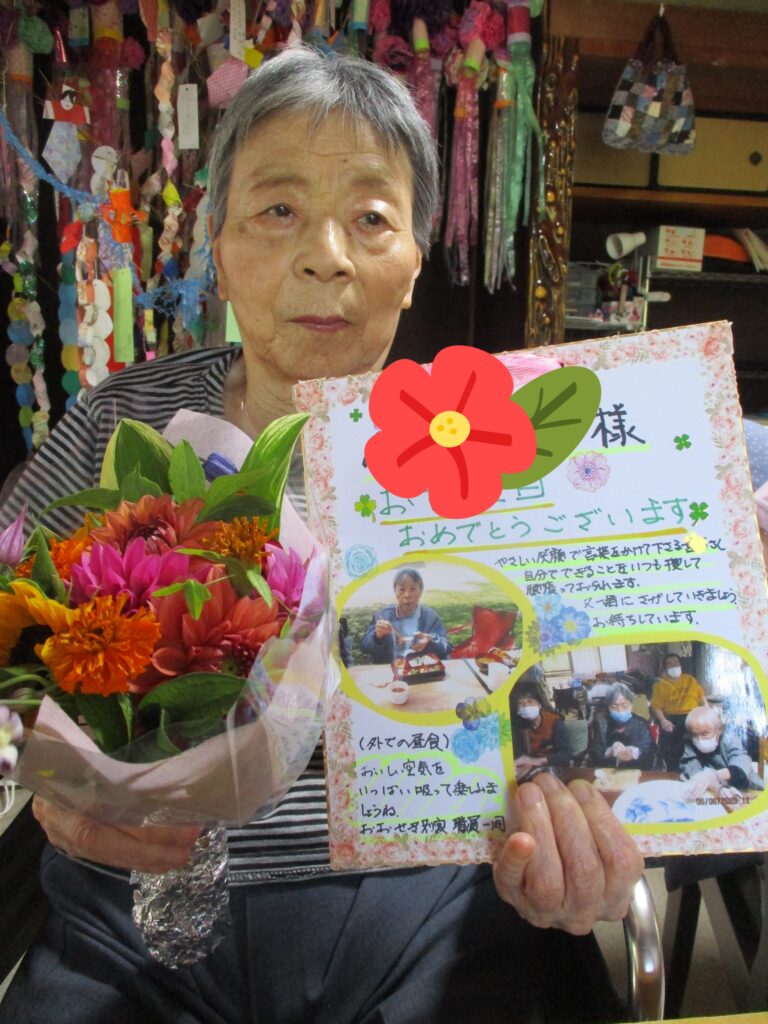 様
お
おめでとうございます
やさしい笑顔で言葉をかけて下さる
自分でできることをいつも捜して
頑張っておられます。
又一緒にさがしていきましょう
お待ちしています.
(外での昼食)
おいしい空気を
いっぱい吸って楽しみま
しょうね.
おおせき別家 職員一同